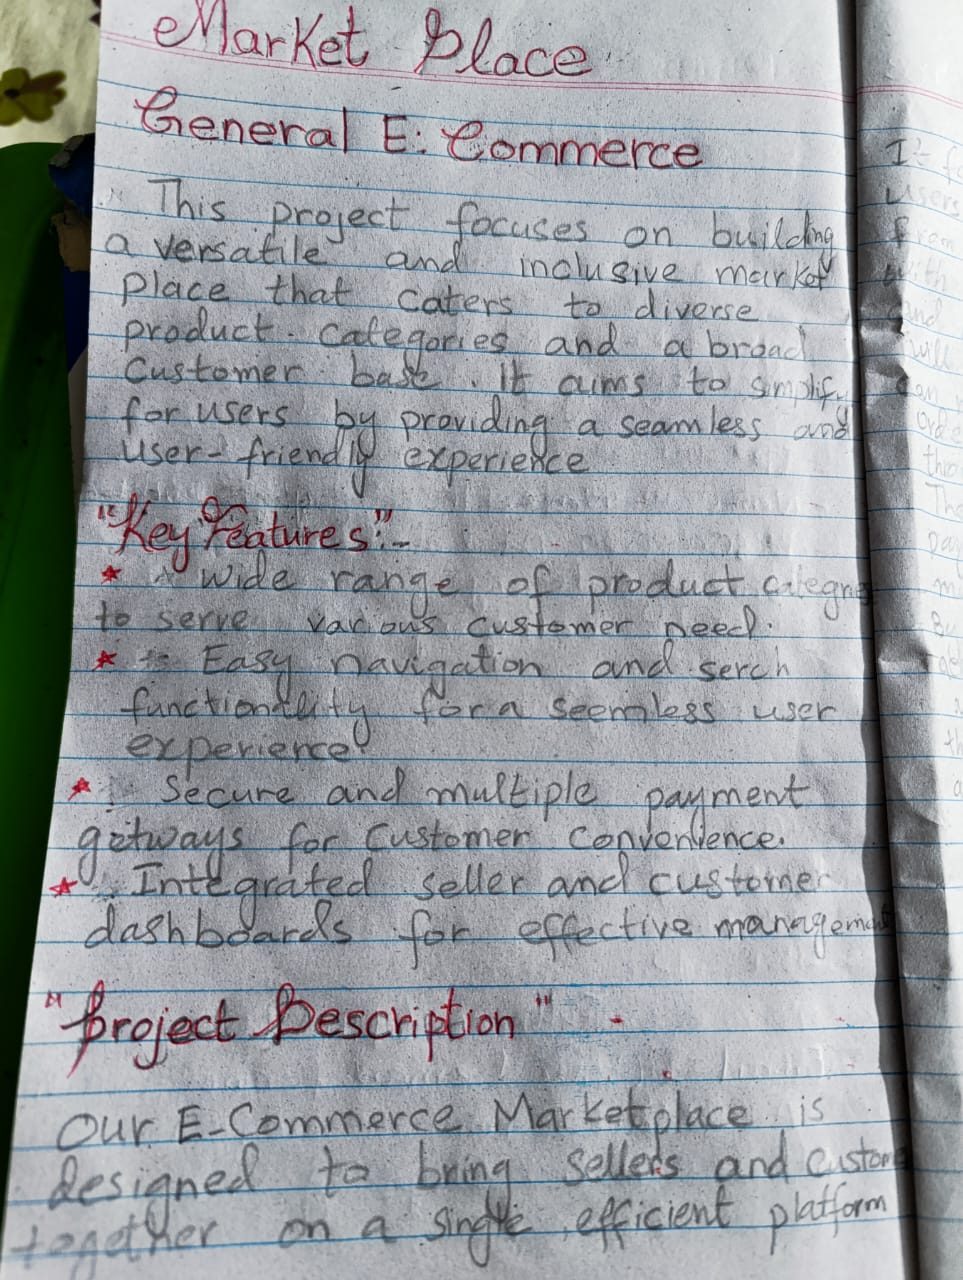 Market Place
General E: Commerce
This project focuses on building
a versatile and inclusive market
Place that caters to diverse
product categories and a broad
Customer base. It aims to simplify
for users by providing a seamless and
User-friendly experience
"Key Features":-
★ A wide range of product
to serve various customer need.
★ Easy navigation and serch
functionality for a seemless user
experience
★ Secure and multiple payment
getways for Customer Convenience.
★ Integrated seller and customer
dashboards for effective
"Project Description"
Our E-Commerce Marketplace is
designed to bring sellers and
together on a single efficient platform
It
users
from
with
and
will